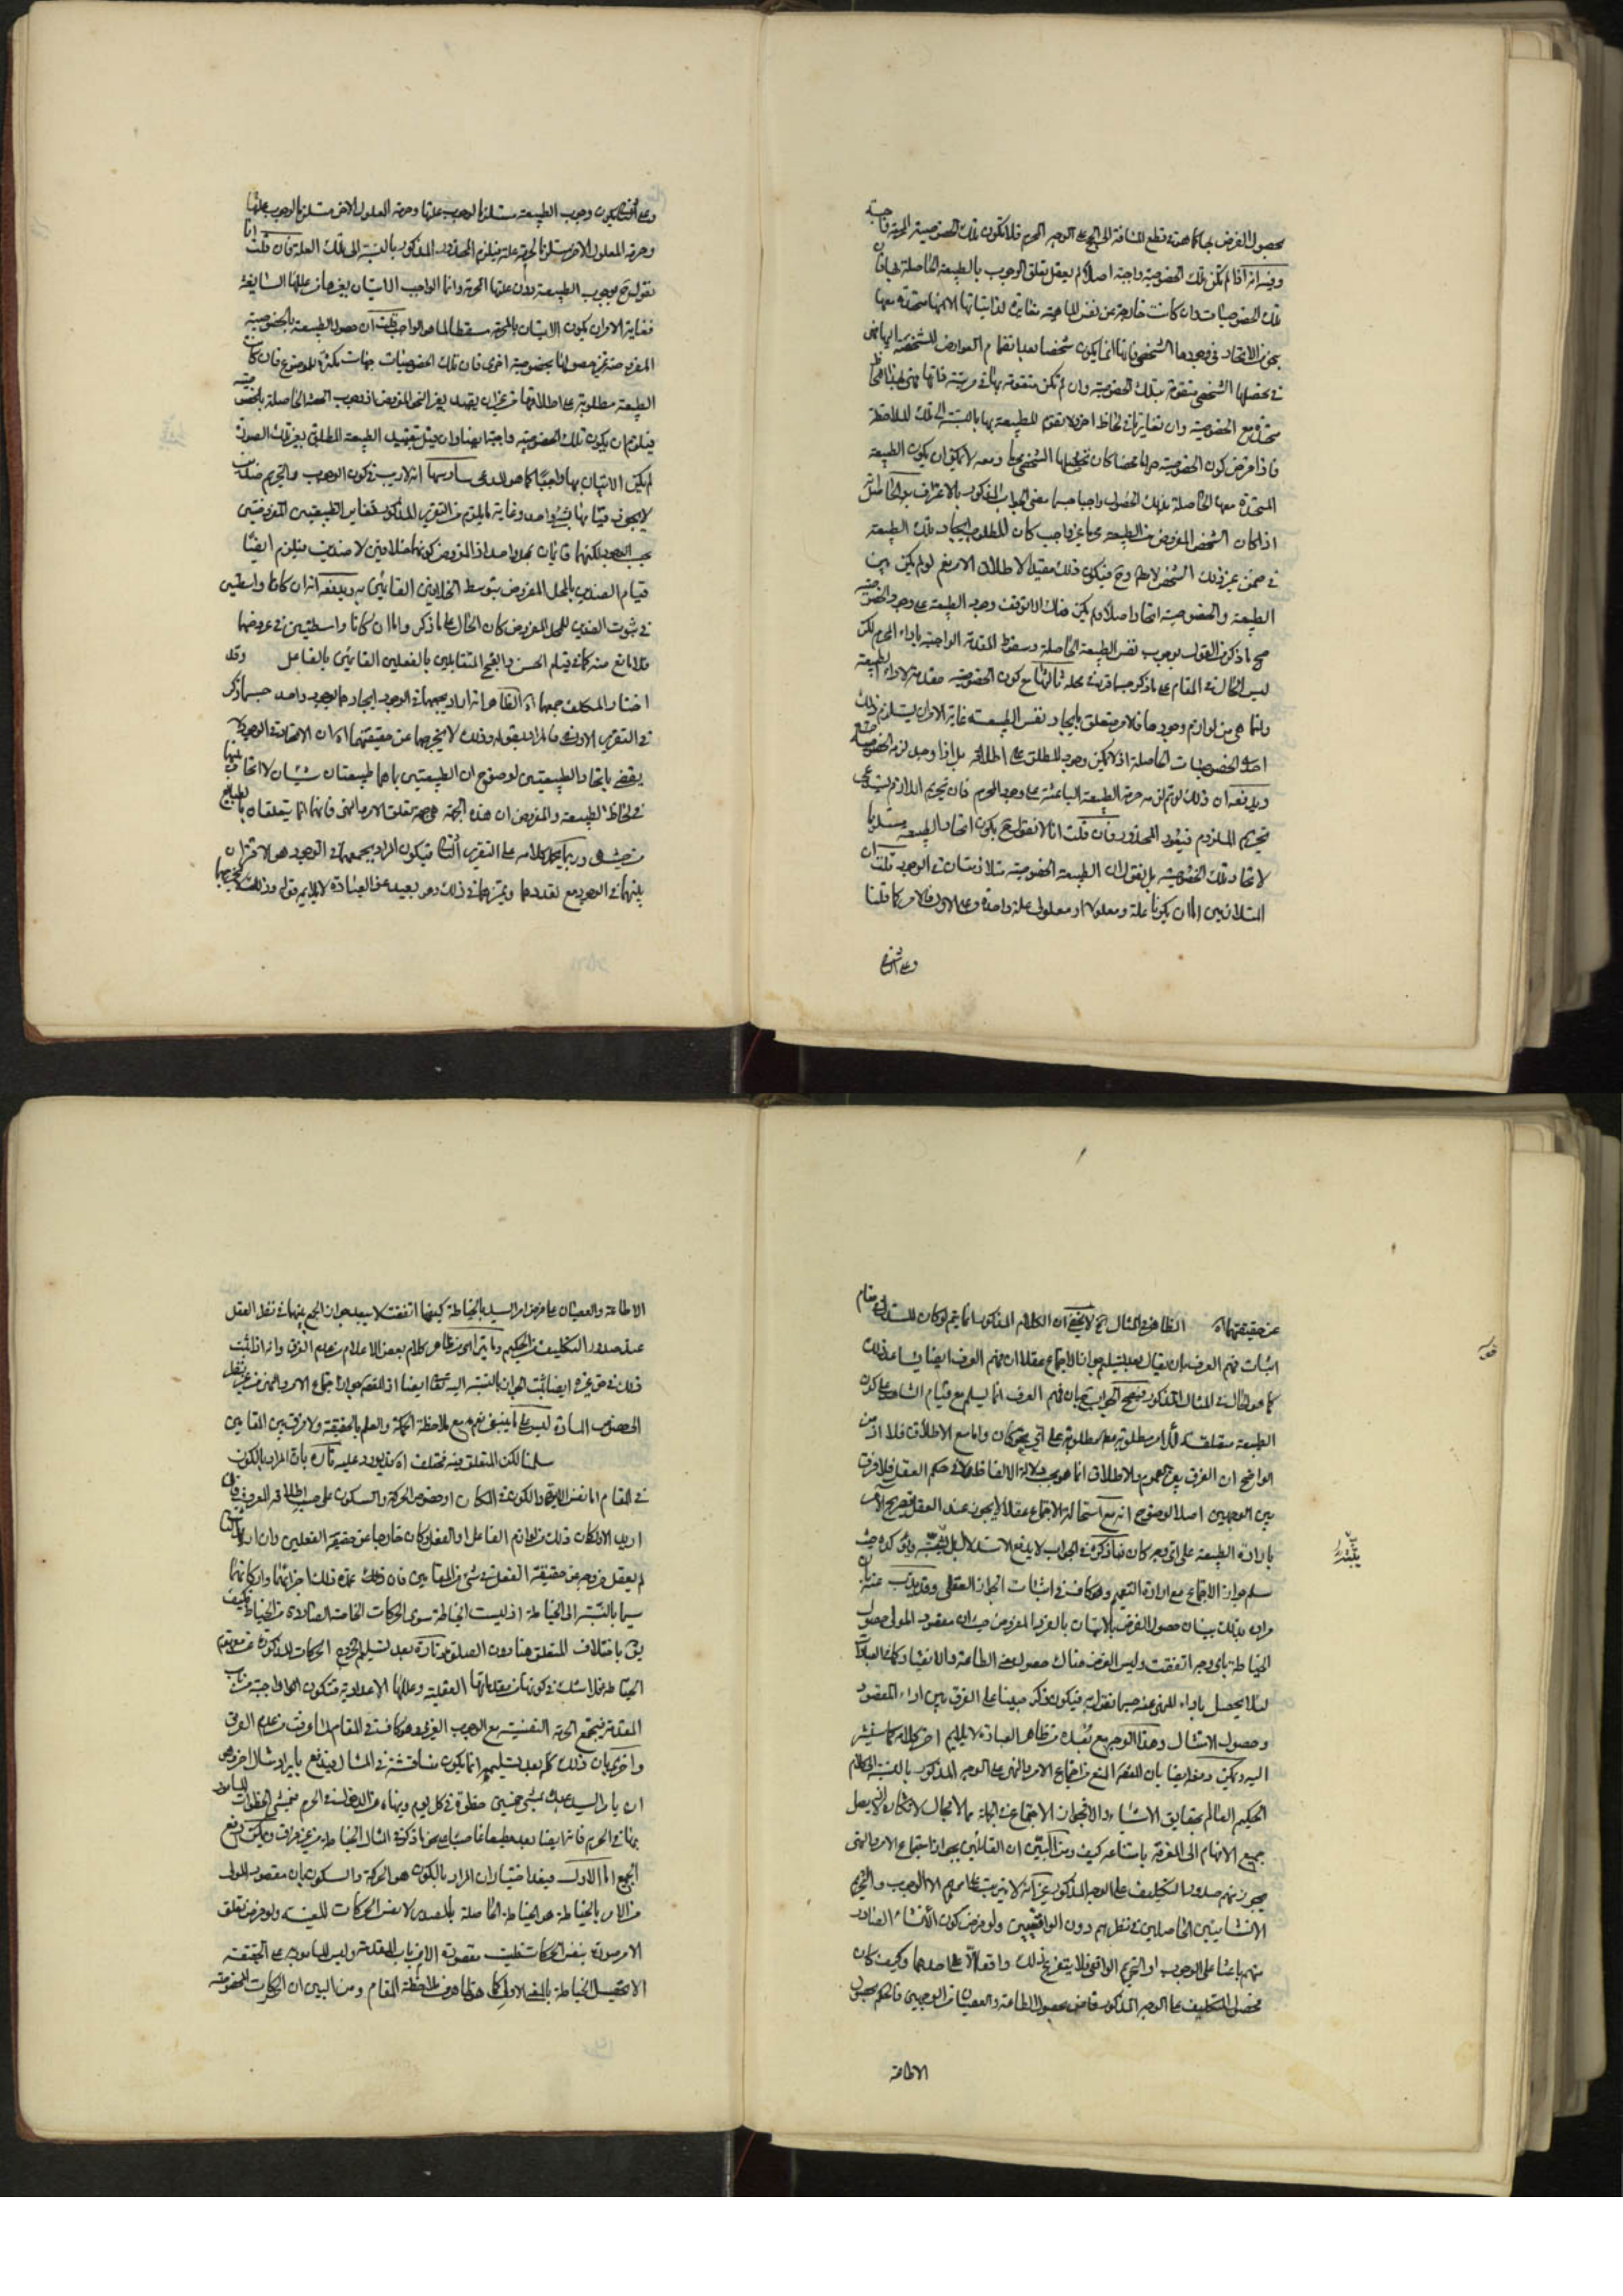 بحصول الغرض بها كما هذه قطع المسافة الى الحج على الوجه المحرم فلا تكون تلك الخصوصية المحرمة واجبة
وفيه انه اذا لم تكن تلك الخصوصية واجبة اصلا لم يعقل تعلق الوجوب بالطبيعة الحاصلة بها فان
تلك الخصوصيات وان كانت خارجة عن نفس الماهية مغايرة لذاتياتها الا انها متحدة معها
بحسب الاتحاد في وجودها الشخصي فانها انما يكون شخصا بعد انضمام العوارض المشخصة اليها فهى
في تحصلها الشخصي متقومة بتلك الخصوصية وان لم تكن متقومة بها في مرتبة ذاتها
متحدة مع الخصوصية وان تغايرتا في لحاظ اخر ولا تقوم للطبيعة بها بالنسبة الى تلك الملاحظة
فاذا فرض كون الخصوصية حراما محضا كان تحصلها الشخصي محرما ومعه لا يمكن ان يكون الطبيعة
المتحدة معها الحاصلة بذلك الحصول واجبا حسبما مضى الجواب المذكور بالاعتراف
اذا كان الشخص المفروض من الطبيعة محرما غير واجب كان المطلوب ايجاد تلك الطبيعة
في ضمن غير ذلك الشخص لا مطلقا وح فيكون ذلك مقيدا لاطلاق الامر نعم لو لم يكن بين
الطبيعة والخصوصية اتحاد اصلا ولم يكن هناك الا توقف وجود الطبيعة على وجود الخصوصية
صح ما ذكر من القول بوجوب نفس الطبيعة الحاصلة وسقوط المقدمة الواجبة باداء المحرم لكن
ليس الحال في المقام على ما ذكر حسبما قرر في محله ثالثها منع كون الخصوصية مقدمة لاداء الطبيعة
وانما هي من لوازم وجودها فالامر متعلق بايجاد نفس الطبيعة غاية الامر ان يستلزم ذلك
احدى الخصوصيات الحاصلة اذ لا يمكن وجود المطلق على اطلاقه بل اذا وجد لزمه الخصوصية
ويدفعه ان ذلك لو تم لزمه حرمة الطبيعة الباعثة على وجود المحرم فان تحريم اللازم يستدعى
تحريم الملزوم فيعود المحذور فان قلت انا لا نقول ح بكون اتحاد الطبيعة مستلزما
لاتحاد تلك الخصوصية بل نقول ان الطبيعة والخصوصية متلازمتان في الوجود قلت ان
المتلازمين اما ان يكونا علة ومعلولا او معلولى علة واحدة وعلى الاول فالامر كما قلنا
وعلى الثانى
وعلى الثانى يكون وجوب الطبيعة مستلزما لوجوب علتها وحرمة المعلول الاخر مستلزما لوجوب علتها
وحرمة المعلول الاخر مستلزما لحرمة علته فيلزم المحذور المذكور بالنسبة الى تلك العلة فان قلت انا
نقول ح بوجوب الطبيعة دون علتها المحرمة وانما الواجب الاتيان بغيرها من عللها السايغة
فغاية الامر ان يكون الاتيان بالمحرمة مسقطا لما هو الواجب قلت ان حصول الطبيعة بالخصوصية
المفروضة غير حصولها بخصوصية اخرى فان تلك الخصوصيات جهات مكثرة للموضوع فان كانت
الطبيعة مطلوبة على اطلاقها من غير ان يقيد بغير النحو المفروض اذ وجوب الحصة الحاصلة بالخصوصية
فيلزم ان يكون تلك الخصوصية واجبة ايضا وان قيل بتقييد الطبيعة المطلق بغير تلك الصورة
لم يكن الاتيان بها واجبا كما هو المدعى سادسها انه لا ريب في كون الوجوب والتحريم ضدين
لا يجوز قيامهما بشئ واحد وغاية ما يلزم من التقرير المذكور تغاير الطبيعتين المفروضتين
بحسب الوجود لكنهما قائمان بمحل واحد اذ المفروض كونهما خلافين لا ضدين فيلزم ايضا
قيام الضدين بالمحل المفروض بتوسط الخلافين القائمين به ويدفعه انه ان كانا واسطتين
في ثبوت الضدين للمحل المفروض كان الحال على ما ذكر واما ان كانا واسطتين في عروضهما
فلا مانع منه كما في قيام الحسن والقبح المتقابلين بالفعلين القائمين بالفاعل وقد
اختار المكلف جمعهما اه الظاهر انه اراد بجمعهما في الوجود ايجادهما بوجود واحد حسبما ذكر
في التقرير الاول فالمراد بقوله وذلك لا يخرجهما عن حقيقتهما اه ان الاتحاد في الوجود لا
يقضى باتحاد الطبيعتين لوضوح ان الطبيعتين باهما طبيعتان شيئان لا اتحاد بينهما
في لحاظ الطبيعة والمفروض ان هذه الجهة هى جهة تعلق الامر والنهى فانهما انما يتعلقان بالطبايع
من حيث هى وربما يحمل كلامه على التقرير الثانى فيكون المراد بجمعهما في الوجود هو الاقتران
بينهما في الوجود مع تعددهما وتميزهما في ذلك وهو بعيد عن العبارة لا يلايم قوله وذلك لا يخرجهما
عن حقيقتهما اه الظاهر في المثال ح لا يخفى ان الكلام المذكور انما يتم لو كان المستدل في مقام
اثبات فهم العرف ان يقال بعد تسليم جواز الاجتماع عقلا ان فهم العرف ايضا يساعد ذلك
كما هو الحال في المثال المذكور فيصح الجواب ح بان فهم العرف انما يسلم مع قيام الشاهد على كون
الطبيعة متعلقة للامر مطلوبة على اى نحو كان واما مع الاطلاق فلا اذ من
الواضح ان الفرق بين العموم والاطلاق انما هو بحسب دلالة الالفاظ واما في حكم العقل فلا فرق
بين الوجهين اصلا لوضوح انه مع استحالة الاجتماع عقلا لا يجوز عند العقل تصريح الامر
بارادة الطبيعة على اى وجه كان فما ذكره في الجواب لا يدفع الاستدلال بل يثبته ويؤكده حيث
سلم جواز الاجتماع مع ارادة التعميم وهو كاف في اثبات الجواز العقلى وقد يذب عنه بان
مراده بذلك بيان حصول الغرض بالاتيان بالفرد المفروض حيث ان مقصود المولى حصول
الخياطة باى وجه اتفقت وليس الغرض هناك حصول محض الطاعة والانقياد كما في العبادات
لئلا يحصل باداء المنهى عنه حسبما نقول به فيكون ما ذكر مبينا على الفرق بين اداء المقصود
وحصول الامتثال وهذا الوجه مع بعده من ظاهر العبارة لا يلايم اخر كلامه كما سنشير
اليه ويمكن دفعه ايضا بان القصد المنع من اجتماع الامر والنهى على الوجه المذكور بالنسبة الى الحكيم
الحكيم العالم بحقايق الاشياء والا فجواز الاجتماع في الجملة مما لا مجال لانكاره اذ لا يصل
جميع الافهام الى المعرفة بامتناعه كيف ومن البين ان القائلين بجواز اجتماع الامر والنهى
يجوز منهم صدور التكليف على الوجه المذكور غير انه لا يترتب على امرهم الا الوجوب والتحريم
الانشائيين الحاصلين في نظرهم دون الواقعيين ولو فرض كون الانشاء الصادر
منهم باعثا على الوجوب او التحريم الواقعى فلا يتفرع ذلك واقعا الا على احدهما وكيف كان
فحصول التكليف على الوجه المذكور قاض بحصول الطاعة والعصيان من الوجهين فالحكم بحصول
الاطاعة
الاطاعة والعصيان على فرض امر السيد بالخياطة كيفما اتفقت لا يبعد جواز الجمع بينهما في نظر العقل
عند صدور التكليف من الحكيم وما يتراءى من ظاهر كلام بعض الاعلام من عدم الفرق وانه اذا ثبت
ذلك في حق غيره ايضا ثبت الجواز بالنسبة اليه تعالى ايضا اذ القصد جواز اجتماع الامر والنهى من غير نظر
الى خصوص المادة ليس على ما ينبغى نعم مع ملاحظة الحكمة والعلم بالحقيقة ولا فرق بين المقامين
سلمنا لكن المتعلق فيه مختلف اه قد يورد عليه تارة بان المراد بالكون
في المقام اما نفس التحيز والكون في المكان او خصوص الحركة والسكون على حسب اطلاقه المعروف فان
اريد الاول كان ذلك من لوازم الفاعل او الفعل وكان خارجا عن حقيقة الفعلين وان اريد الثانى
لم يعقل خروجه عن حقيقة الفعل في شئ من المقامين فان ذلك عمدة تلك اجزائهما واركانهما
سيما بالنسبة الى الخياطة اذ ليست الخياطة سوى الحركات الخاصة الصادرة من الخياط فكيف
يق باختلاف المتعلق هنا دون الصلوة وتارة بعد تسليم خروج الحركات المذكورة عن حقيقة
الخياطة فلا شك في كونها من مقدماتها العقلية وعللها الاعدادية فتكون ح واجبة من باب
المقدمة فيجتمع الحرمة النفسية مع الوجوب الغيرى وهو كاف في المقام لما عرفت من عدم الفرق
واخرى بان ذلك كله بعد تسليمه انما يكون مناقشة في المثال فيندفع بايراد مثال اخر وهو
ان يامر السيد عبده بمشى خمسين خطوة في كل يوم وينهاه عن الدخول في الحرم فمشى الخطوات المامور
بها في الحرم فانه ايضا يعد مطيعا عاصيا على نحو ما ذكر في المثال الخياطة من غير فرق ويمكن دفع
الجميع اما الاول فبعد اختيار ان المراد بالكون هو الحركة والسكون بان مقصود المولى
من الامر بالخياطة هو الخياطة الحاصلة بالمصدر لا نفس الحركات المعينة ولو فرض تعلق
الامر صورة بنفس الحركات فليست مقصودة الا من باب المقدمة وليس المامور به على الحقيقة
الا تحصيل الخياطة بالمعنى الاول كما هو ظاهر من ملاحظة المقام ومن البين ان الحركات المخصوصة